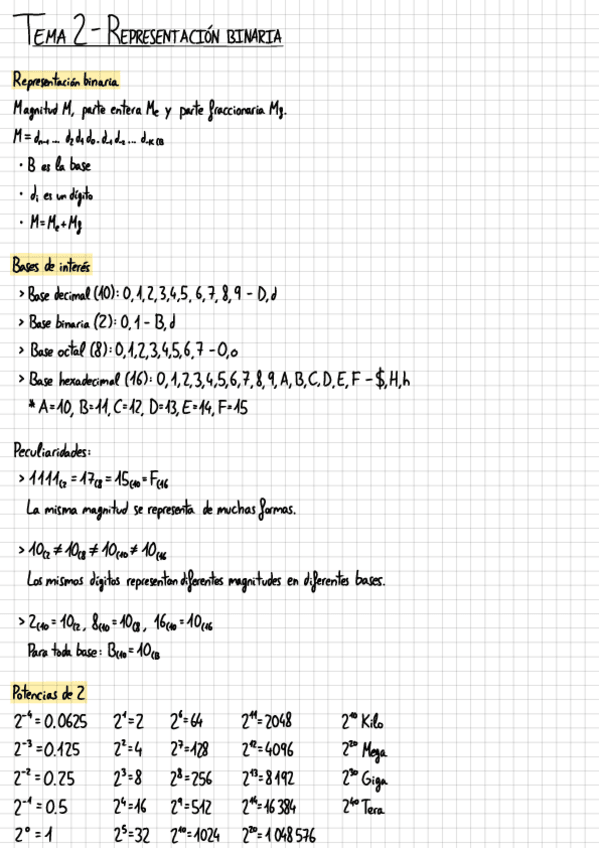 TEMA 2 - REPRESENTACIÓN BINARIA
Representación binaria
Magnitud M, parte entera Me y parte fraccionaria Mf.
M = dn-1 ... d2 d1 d0 . d-1 d-2 ... d-K (B
· B es la base
· di es un dígito
· M = Me + Mf
Bases de interés
> Base decimal (10): 0,1,2,3,4,5,6,7,8,9 - D,d
> Base binaria (2): 0,1 - B,d
> Base octal (8): 0,1,2,3,4,5,6,7 - O,o
> Base hexadecimal (16): 0,1,2,3,4,5,6,7,8,9,A,B,C,D,E,F - $,H,h
* A=10, B=11, C=12, D=13, E=14, F=15
Peculiaridades:
> 1111(2 = 17(8 = 15(10 = F(16
La misma magnitud se representa de muchas formas.
> 10(2 ≠ 10(8 ≠ 10(10 ≠ 10(16
Los mismos dígitos representan diferentes magnitudes en diferentes bases.
> 2(10 = 10(2, 8(10 = 10(8, 16(10 = 10(16
Para toda base: B(10 = 10(B
Potencias de 2
2⁻⁴ = 0.0625 2¹ = 2 2⁶ = 64 2¹¹ = 2048 2¹⁰ Kilo
2⁻³ = 0.125 2² = 4 2⁷ = 128 2¹² = 4096 2²⁰ Mega
2⁻² = 0.25 2³ = 8 2⁸ = 256 2¹³ = 8192 2³⁰ Giga
2⁻¹ = 0.5 2⁴ = 16 2⁹ = 512 2¹⁴ = 16 384 2⁴⁰ Tera
2⁰ = 1 2⁵ = 32 2¹⁰ = 1024 2²⁰ = 1 048 576